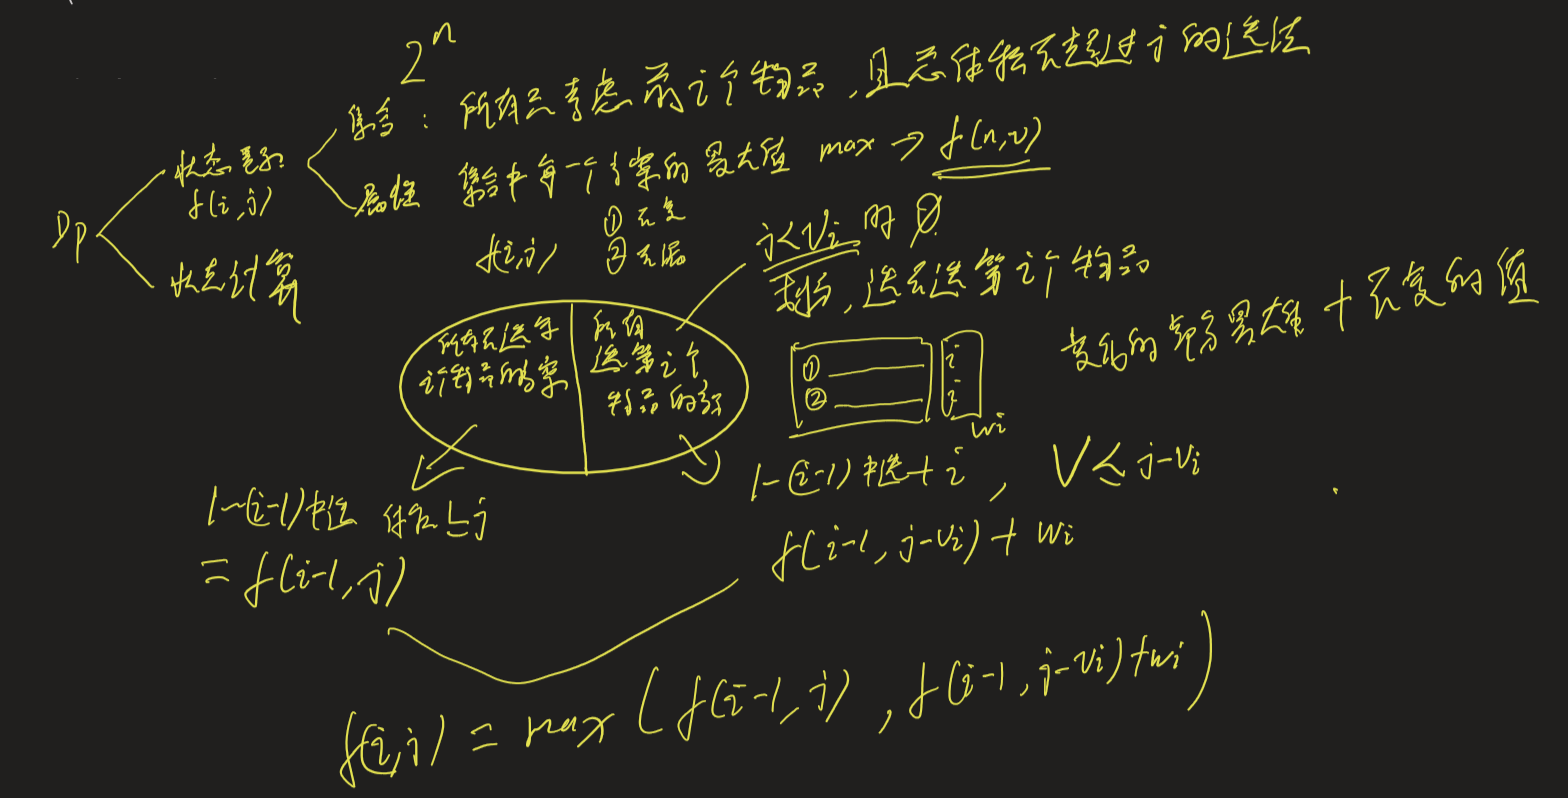 2^n
集合：所有只考虑前i个物品，且总体积不超过j的选法
Dp
状态表示
f(i,j)
属性 集合中每一个方案的最大值 max → f(n,v)
状态计算
f(i,j)
① 不重
② 不漏
j<vi 时 ∅
划分，选不选第i个物品
所有不选第
i个物品的方案
所有
选第i个
物品的方案
① ②
i i
wi
变化的部分最大值 + 不变的值
1~(i-1)中选 体积≤j
= f(i-1,j)
1-(i-1)中选+i, V≤j-vi
f(i-1,j-vi)+wi
f(i,j) = max(f(i-1,j),f(i-1,j-vi)+wi)